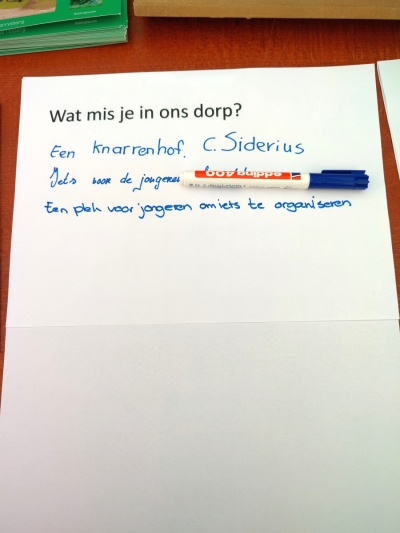 Wat mis je in ons dorp?
Een knarrenhof. C. Siderius
Iets voor de jongeren
edding 400
Een plek voor jongeren om iets te organiseren